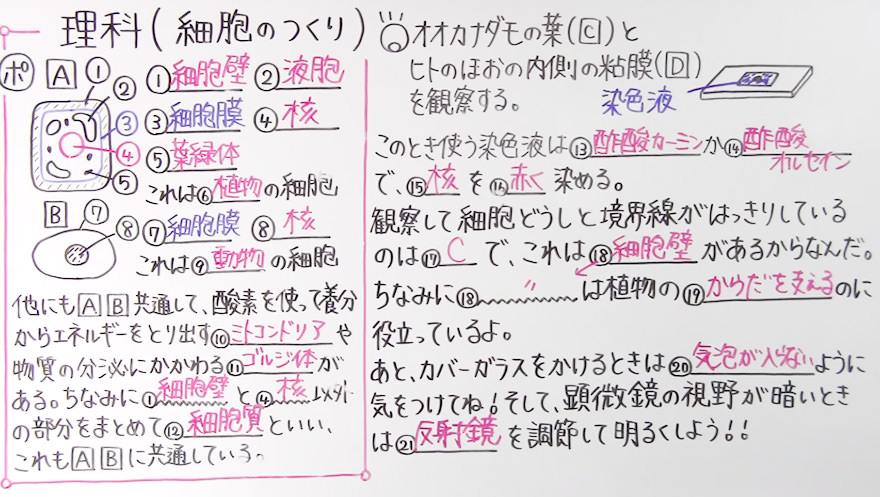 理科(細胞のつくり)
ポ A ① ① 細胞壁 ② 液胞
② ③ ③ 細胞膜 ④ 核
④ ⑤ 葉緑体
⑤ これは⑥植物の細胞
B ⑦ ⑧ ⑦ 細胞膜 ⑧ 核
これは⑨動物の細胞
他にもAB共通して、酸素を使って養分
からエネルギーをとり出す⑩ミトコンドリアや
物質の分泌にかかわる⑪ゴルジ体が
ある。ちなみに①細胞壁と④核以外
の部分をまとめて⑫細胞質といい、
これもABに共通している。
オオカナダモの葉(C)と
ヒトのほおの内側の粘膜(D)
を観察する。 染色液
このとき使う染色液は⑬酢酸カーミンか⑭酢酸
オルセイン
で、⑮核を⑯赤く染める。
観察して細胞どうしと境界線がはっきりしている
のは⑰Cで、これは⑱細胞壁があるからなんだ。
ちなみに⑱〃は植物の⑲からだを支えるのに
役立っているよ。
あと、カバーガラスをかけるときは⑳気泡が入らないように
気をつけてね!そして、顕微鏡の視野が暗いとき
は㉑反射鏡を調節して明るくしよう!!